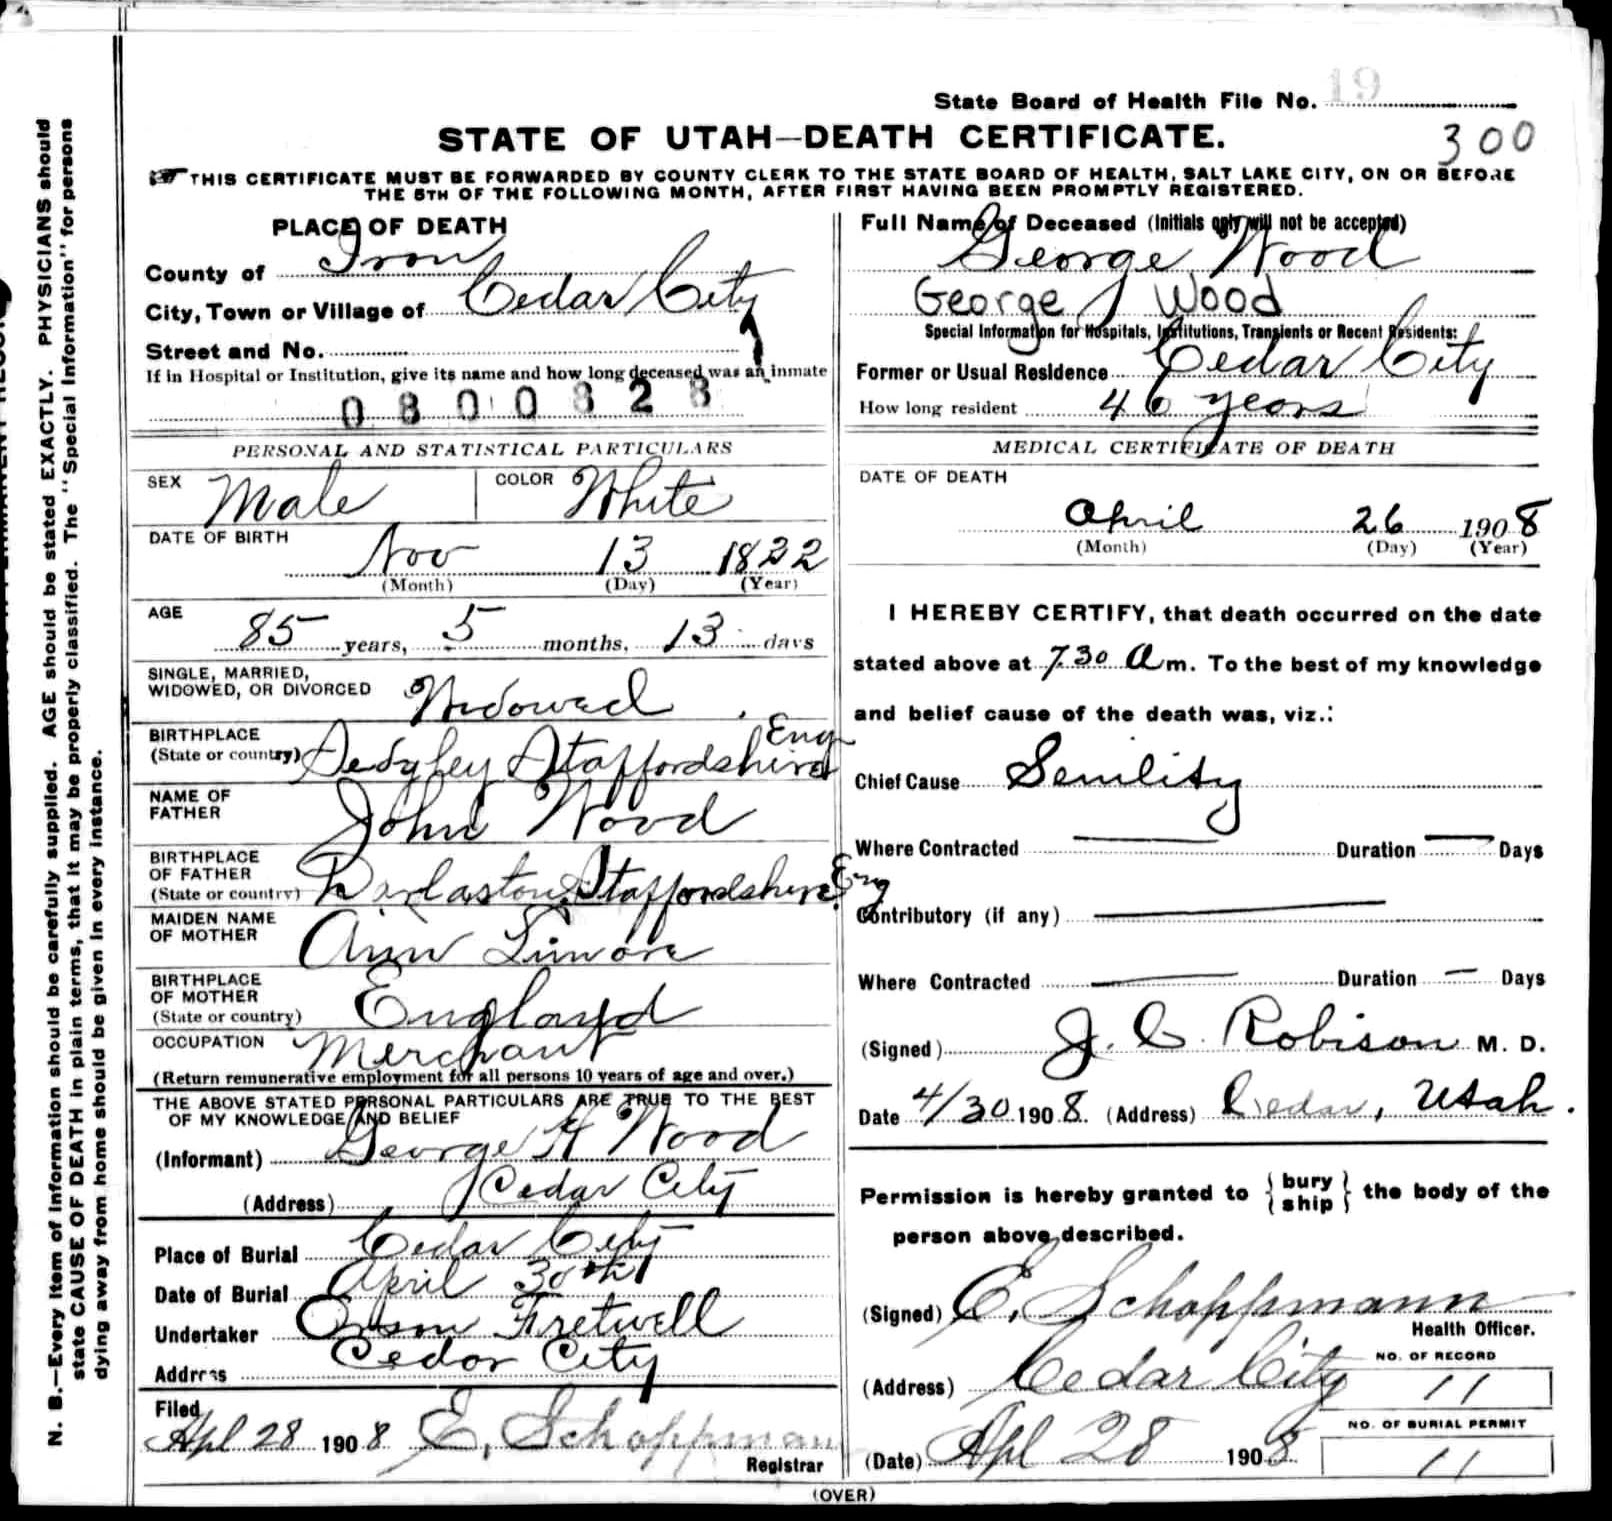 State Board of Health File No. 19
STATE OF UTAH—DEATH CERTIFICATE.
300
THIS CERTIFICATE MUST BE FORWARDED BY COUNTY CLERK TO THE STATE BOARD OF HEALTH, SALT LAKE CITY, ON OR BEFORE
THE 5TH OF THE FOLLOWING MONTH, AFTER FIRST HAVING BEEN PROMPTLY REGISTERED.
PLACE OF DEATH
County of Iron
City, Town or Village of Cedar City
Street and No.
If in Hospital or Institution, give its name and how long deceased was an inmate
0800828
PERSONAL AND STATISTICAL PARTICULARS
SEX Male COLOR White
DATE OF BIRTH
Nov 13 1822
(Month) (Day) (Year)
AGE
85 years, 5 months, 13 days
SINGLE, MARRIED,
WIDOWED, OR DIVORCED Widowed
BIRTHPLACE Eng
(State or country) Sedgley Staffordshire
NAME OF
FATHER John Wood
BIRTHPLACE
OF FATHER
(State or country) Darlaston Staffordshire Eng
MAIDEN NAME
OF MOTHER Ann
BIRTHPLACE
OF MOTHER
(State or country) England
OCCUPATION Merchant
(Return remunerative employment for all persons 10 years of age and over.)
THE ABOVE STATED PERSONAL PARTICULARS ARE TRUE TO THE BEST
OF MY KNOWLEDGE AND BELIEF
(Informant) George H Wood
(Address) Cedar City
Place of Burial Cedar City
Date of Burial April 30th
Undertaker Orson Fretwell
Address Cedar City
Filed
Apl 28 1908 E. Schoppmann
Registrar
Full Name of Deceased (Initials only will not be accepted)
George Wood
George Wood
Special Information for Hospitals, Institutions, Transients or Recent Residents:
Former or Usual Residence Cedar City
How long resident 46 years
MEDICAL CERTIFICATE OF DEATH
DATE OF DEATH
April 26 1908
(Month) (Day) (Year)
I HEREBY CERTIFY, that death occurred on the date
stated above at 7.30 A m. To the best of my knowledge
and belief cause of the death was, viz.:
Chief Cause Senility
Where Contracted — Duration — Days
Contributory (if any) —
Where Contracted — Duration — Days
(Signed) J. C. Robison M. D.
Date 4/30 1908. (Address) Cedar, Utah.
Permission is hereby granted to { bury ship } the body of the
person above described.
(Signed) E. Schoppmann
Health Officer.
(Address) Cedar City
NO. OF RECORD
11
NO. OF BURIAL PERMIT
11
(Date) Apl 28 1908
(OVER)
N. B.—Every item of information should be carefully supplied. AGE should be stated EXACTLY. PHYSICIANS should
state CAUSE OF DEATH in plain terms, that it may be properly classified. The "Special Information" for persons
dying away from home should be given in every instance.